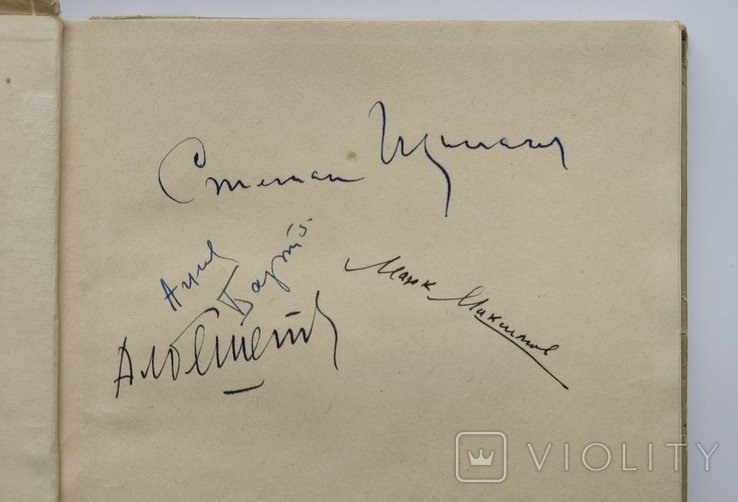 Степан Щипачев
Агния
Барто
Марк Максимов
VIOLITY